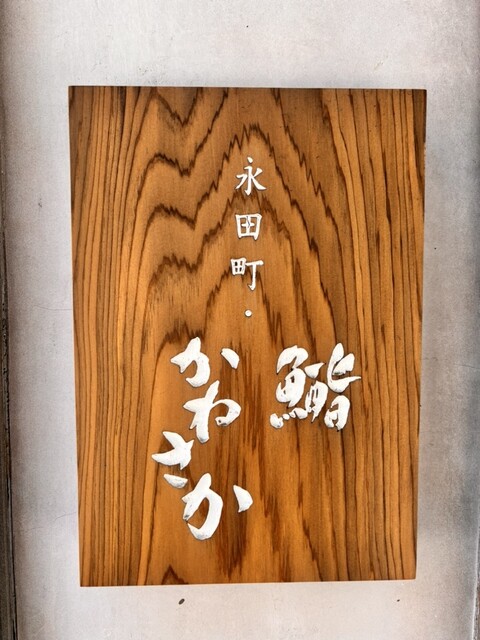 永田町・
鮨
かわさか